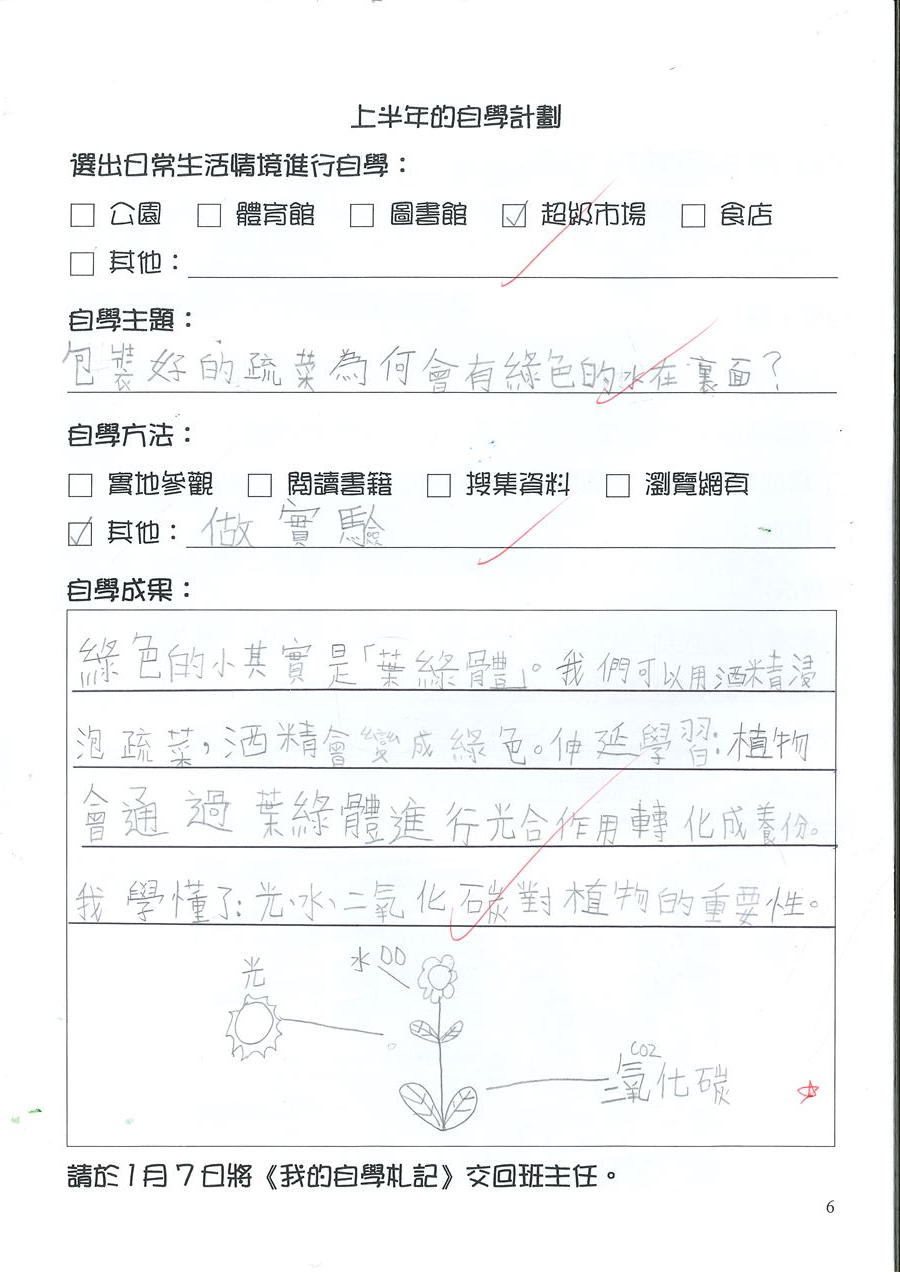 上半年的自學計劃
選出日常生活情境進行自學：
□ 公園 □ 體育館 □ 圖書館 ☑ 超級市場 □ 食店
□ 其他：
自學主題：
包裝好的疏菜為何會有綠色的水在裏面？
自學方法：
□ 實地參觀 □ 閱讀書籍 □ 搜集資料 □ 瀏覽網頁
☑ 其他：做實驗
自學成果：
綠色的小其實是「葉綠體」。我們可以用酒精浸
泡疏菜，酒精會變成綠色。伸延學習：植物
會通過葉綠體進行光合作用轉化成養份。
我學懂了：光、水、二氧化碳對植物的重要性。
水
光
CO2
二氧化碳
請於1月7日將《我的自學札記》交回班主任。
6